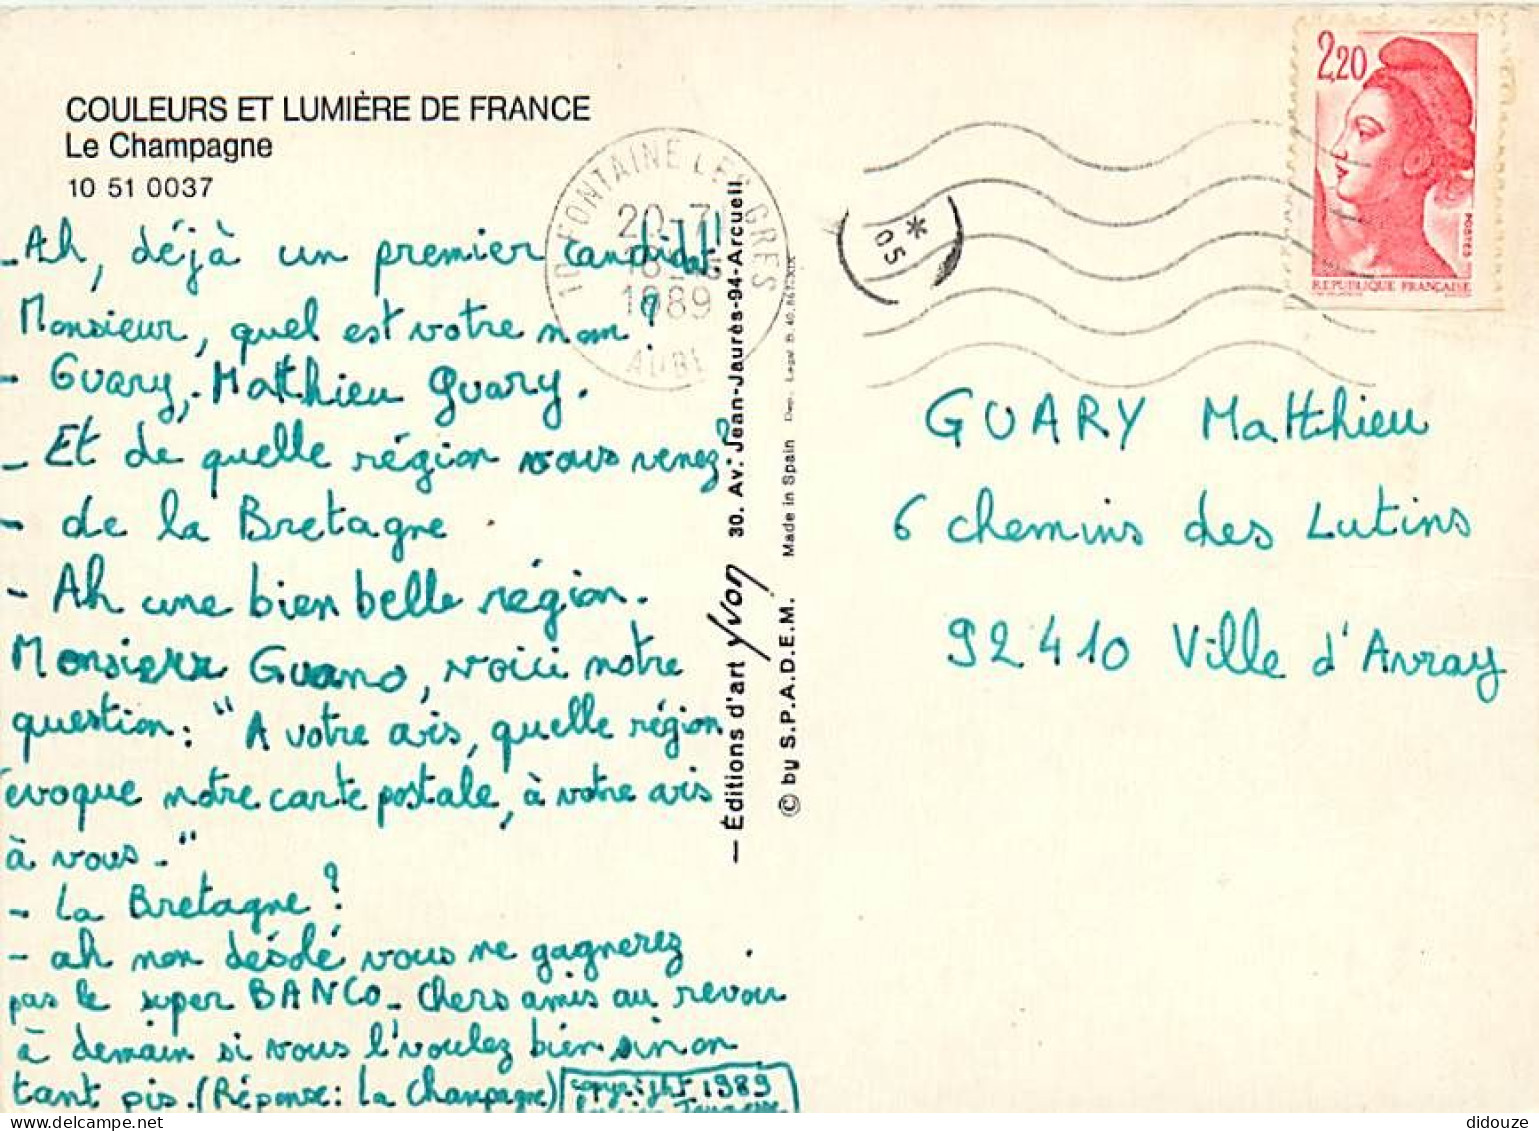 COULEURS ET LUMIÈRE DE FRANCE
Le Champagne
10 51 0037
- Ah, déjà un premier candidat!!!
Monsieur, quel est votre nom?
- Guary, Matthieu Guary.
- Et de quelle région vous venez?
- de la Bretagne
- Ah une bien belle région.
Monsieur Guano, voici notre
question: "A votre avis, quelle région
évoque notre carte postale, à votre avis
à vous-"
- La Bretagne?
- ah non désolé vous ne gagnerez
pas le super BANCO- Chers amis au revoir
à demain si vous l'voulez bien sinon
tant pis. (Réponse: la Champagne)
copyright 1989
10 FONTAINE LES GRES
20-7
1989
AUBE
— Éditions d'art Yvon 30. Av. Jean-Jaurès-94-Arcueil
© by S.P.A.D.E.M. Made in Spain
* 05
2,20
POSTES
REPUBLIQUE FRANÇAISE
GUARY Matthieu
6 chemins des Lutins
92410 Ville d'Avray
didouze